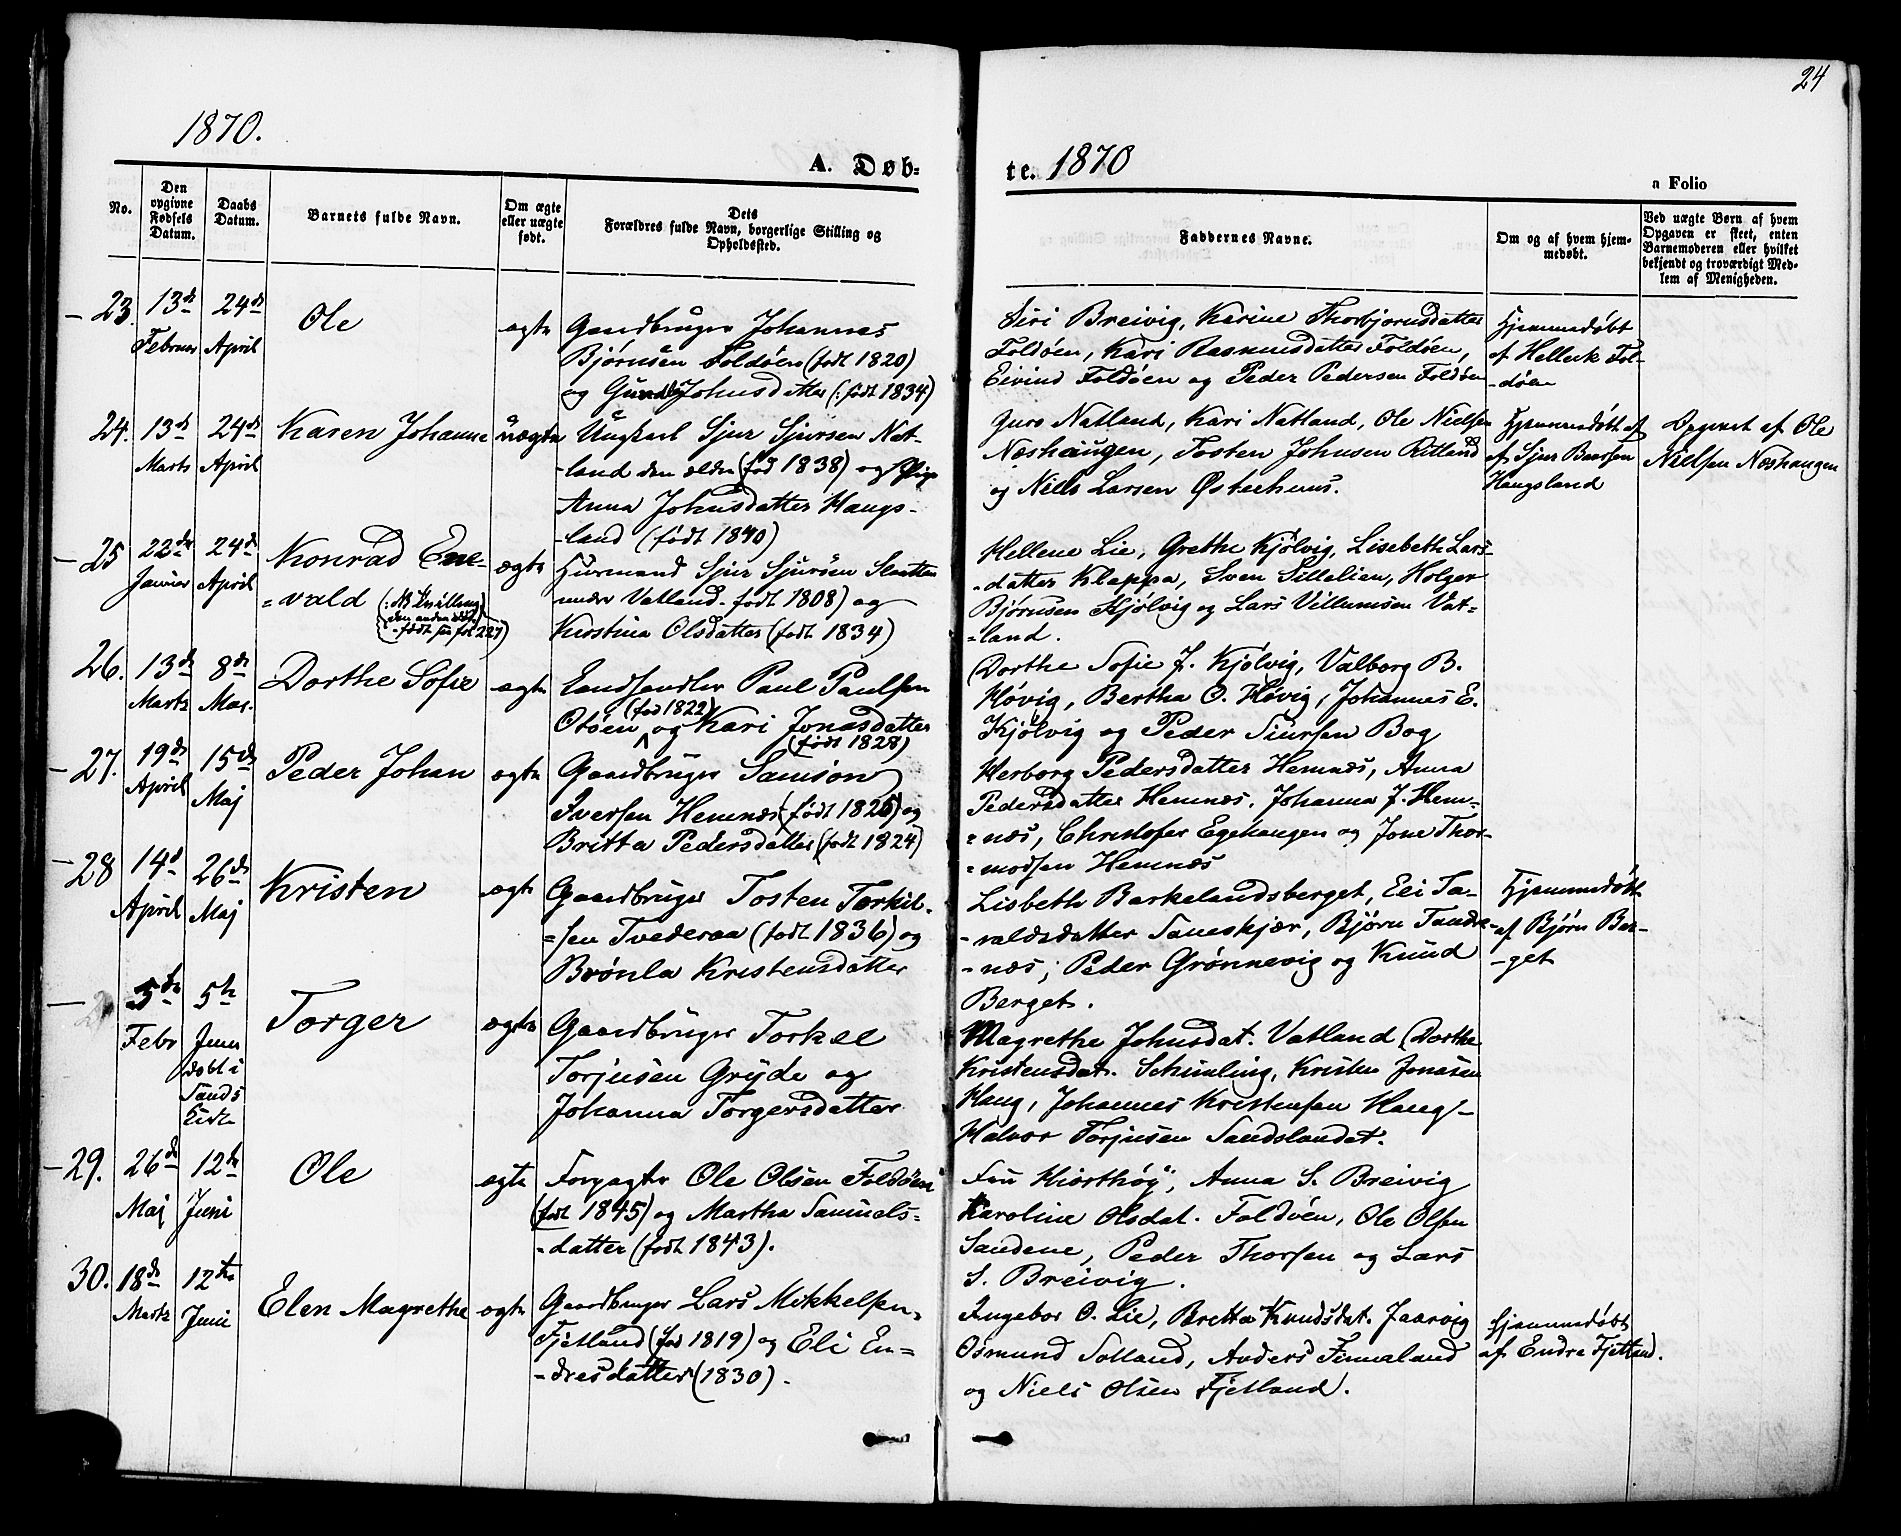 24
1870.
A. Døb-
te. 1870
a Folio
No.
Den opgivne Fødsels Datum.
Daabs Datum.
Barnets fulde Navn.
Om ægte eller uægte født.
Dets Forældres fulde Navn, borgerlige Stilling og Opholdssted.
Faddernes Navne.
Om og af hvem hjemmedøbt.
Ved uægte Børn af hvem Opgaven er skeet, enten Barnemoderen eller hvilket bekjendt og troværdigt Medlem af Menigheden.
23. 13de Februar 24de April Ole ægte
Gaardbruger Johannes
Bjørnsen Foldøen (født 1820)
og Johnsdatter (født 1834)
Siri Breivig, Karine Thorbjornsdatter
Foldøen, Kari Rasmusdatter Foldøen,
Eivind Foldöen og Peder Pedersen Foldøen
Hjemmedøbt
af Hellerk Fol-
-döen
24. 13de Marts 24de April Karen Johanne uægte
Ungkarl Sjur Sjursen Nat-
-land den ældre (fød 1838) og Pige
Anna Johnsdatter Haugs-
-land (født 1840)
Guro Natland, Kari Natland, Ole Nielsen
Næshaugen, Tosten Johnsen Ritland
og Niels Larsen Østerhus.
Hjemmedøbt af
af Sjur Baarsen
Haugsland
Opgivet af Ole
Nielsen Næshaugen
25 22de Januar 24de April Konrad Ene-
=vald ægte
Huusmand Sjur Sjursen Slaatten
under Vatland. født 1808) og
Kirstina Olsdatter (født 1834)
Hellene Lie, Grethe Kjölvig, Lisebeth Lars-
-datter Klappa, Sven Sillelien, Holger
Bjørnsen Kjølvig og Lars Villumsen Vat=
=land.
26. 13de Marts 8de Mai. Dorthe Sofie ægte
Landhandler Paul Paulsen
(fød 1822)
Otöen og Kari Jonasdatter
(født 1828)
Dorthe Sofie J. Kjölvig, Valborg B.
Høvig, Bertha O. Høvig, Johannes E.
Kjölvig og Peder Siursen Bog
27. 19de April 15de Maj Peder Johan ægte
Gaardbruger Samson
Iversen Hemnæs (født 1826) og
Britta Pedersdatter (født 1824)
Herborg Pedersdatter Hemnæs, Anna
Pedersdatter Hemnæs. Johanna J. Hem-
=næs, Christofer Egehaugen og Jone Thor-
=modsen Hemnæs
28 14d April 26de Maj Kristen ægte
Gaardbruger Tosten Torkil-
=sen Tvederaa (født 1836) og
Brönla Kristensdatter
Lisbeth Barkelandsberget, Eli Ta-
-valdsdatter Saneskjær, Bjørn Tande-
-næs, Peder Grønnevig og Knud
Berget.
Hjemmedøbt
af Bjørn Ber-
-get
5te Febr 5te Juni
døbt i
Sands
Kirke
Torger ægte
Gaardbruger Torkel
Torjusen Gryde og
Johanna Torgersdatter
Magrethe Johnsdat. Vatland, Dorthe
Kristensdat. Schimling, Kristen Jonasen
Haug, Johannes Kristensen Haug
Halvor Torjusen Sandslandet.
29. 26de Maj 12te Juni Ole ægte
Forpagter Ole Olsen Foldöen
(født 1845) og Martha Samuels=
-datter (født 1843).
Fru Hiorthøy, Anna S. Breivig
Karoline Olsdat. Foldöen, Ole Olsen
Sandene, Peder Thorsen og Lars
S. Breivig.
30. 18de Marts 12te Juni Elen Magrethe ægte
Gaardbruger Lars Mikkelsen
Fjetland (fød 1819) og Eli En=
-dresdatter (1830).
Ingebor O. Lie, Bretta Knudsdat. Jaarvig
Osmund Solland, Anders Finnaland
og Niels Olsen Fjetland.
Hjemmedöbt
af Endre Fjetland.